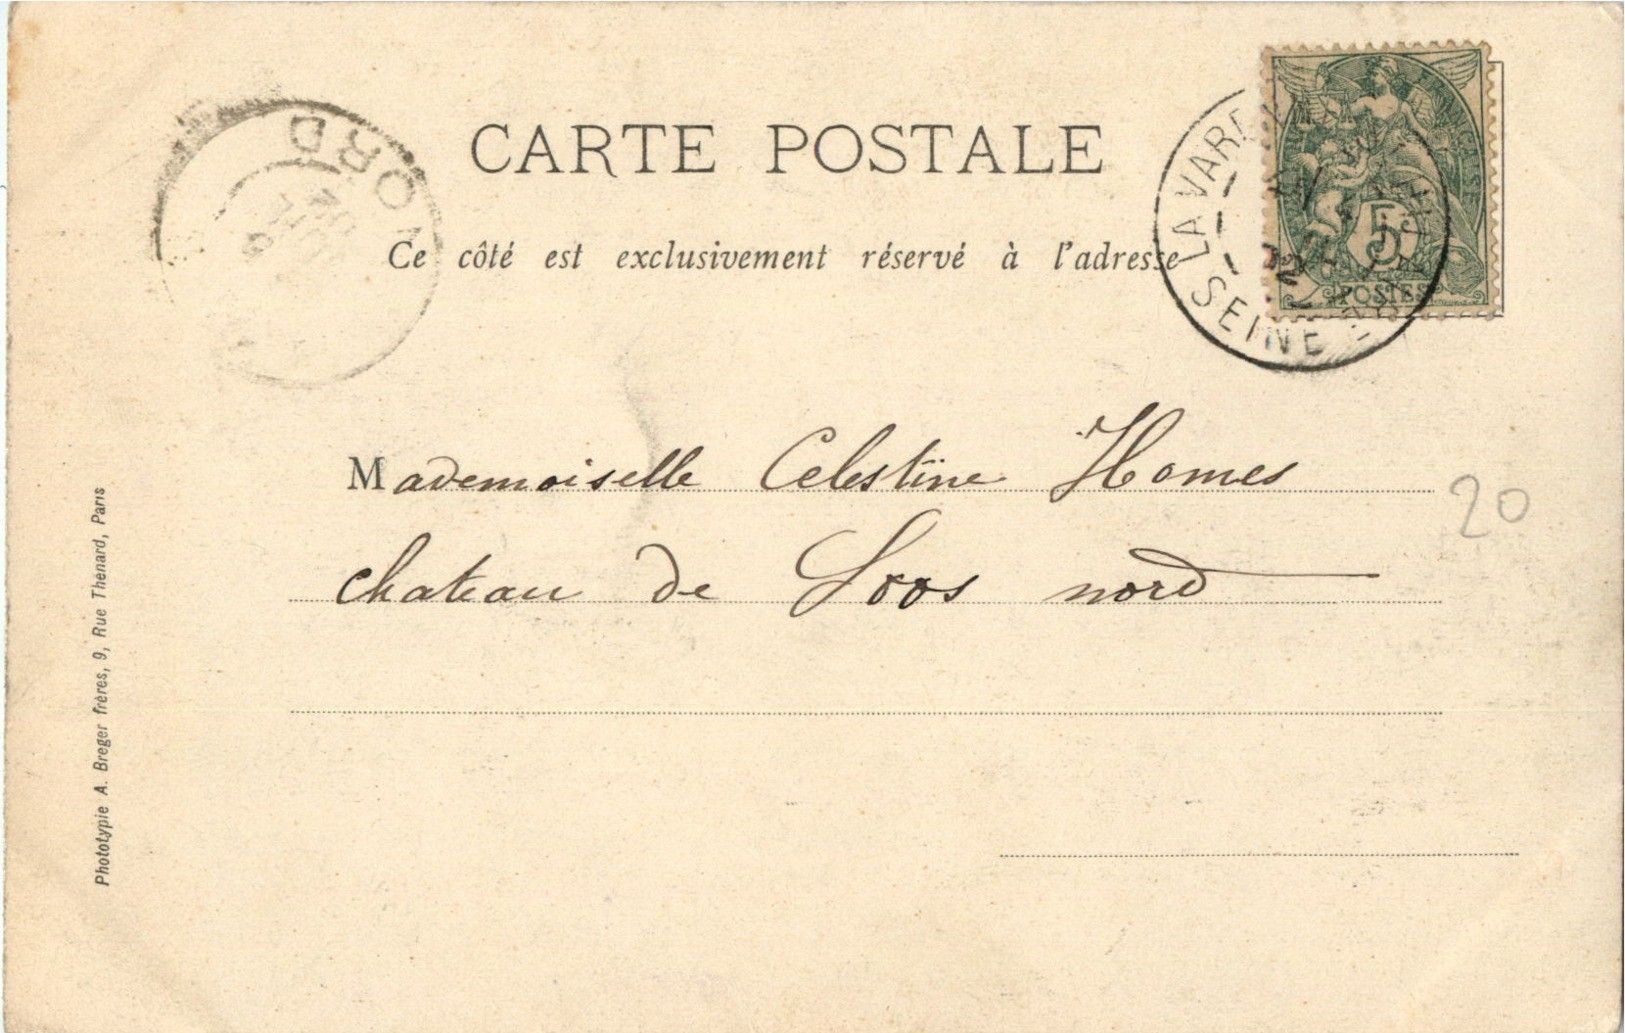 CARTE POSTALE
Ce côté est exclusivement réservé à l'adresse
NORD
LA VAR
SEINE
5
POSTES
Mademoiselle Celestine Homes
chateau de Loos nord
20
Phototypie A. Breger frères, 9, Rue Thénard, Paris